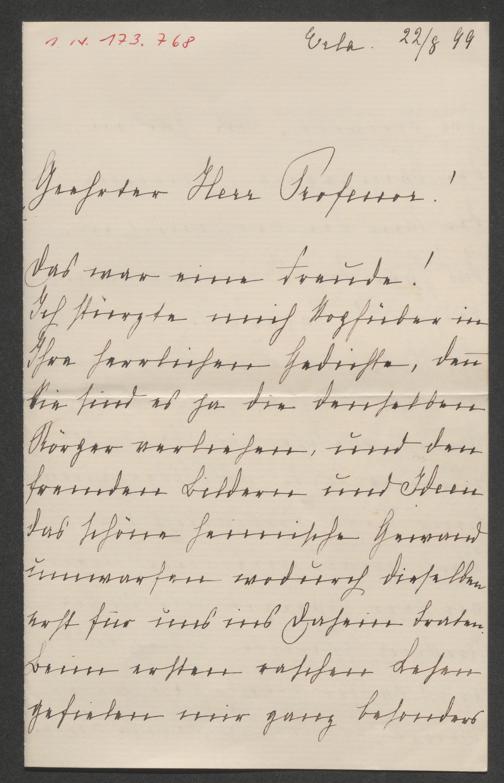 1 N. 173.768
Erla. 22/8 99
Geehrter Herr Professor!
Das war eine Freude!
Ich stürzte mich kopfüber in
Ihre herrlichen Gedichte, den̄
Sie sind es ja die denselben
Körper verliehen, und den
fremden Bildern und Ideen
das schöne heimische Gewand
umwarfen wodurch dieselben
erst für uns ins Dasein traten.
Beim ersten raschen Lesen
gefielen mir ganz besonders